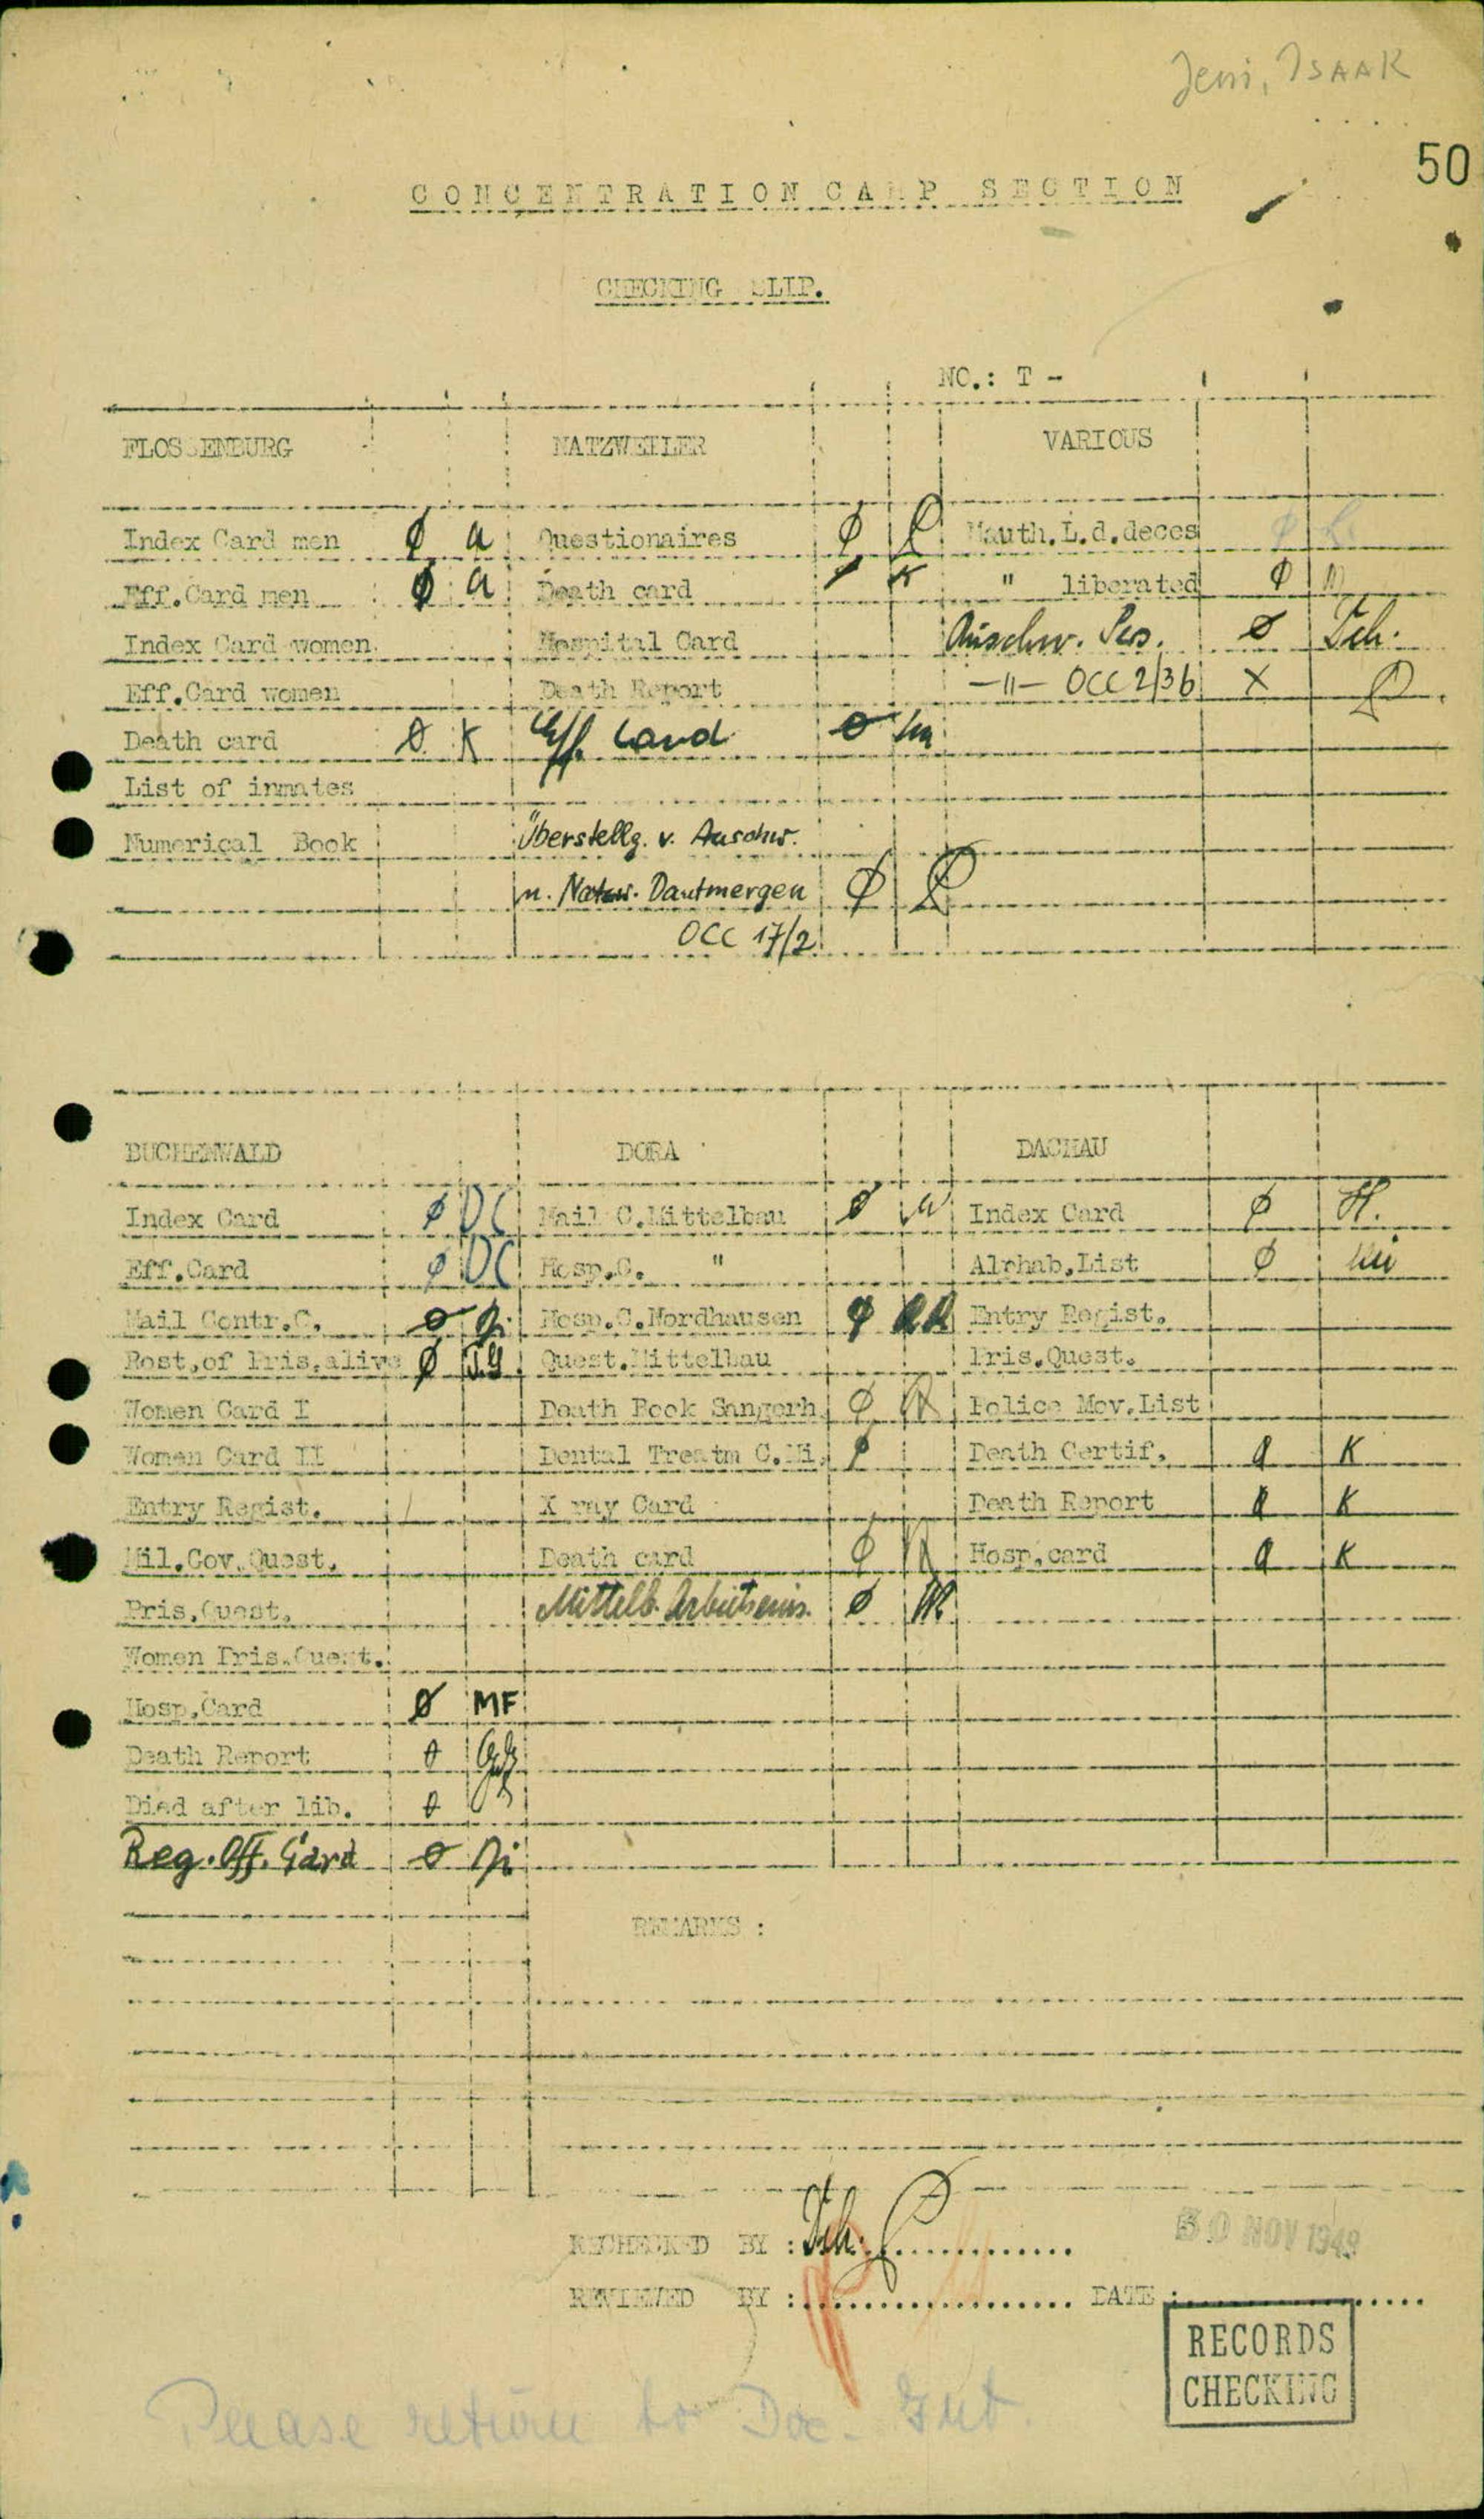 Jeni, ISAAK
50
CONCENTRATION CAMP SECTION
CHECKING SLIP.
NO.: T -
FLOSSENBURG NATZWEILER VARIOUS
Index Card men ø a Questionaires ø Mauth.L.d.deces ø
Eff.Card men ø a Death card K " liberated ø
Index Card women Hospital Card Auschw. ø Sch.
Eff.Card women Death Report -"- OCC 2/36 X
Death card ø K Eff. Card ø
List of inmates
Numerical Book Überstellg. v. Auschw.
n. Natzw. Dautmergen ø
OCC 17/2
BUCHENWALD DORA DACHAU
Index Card ø DC Mail C.Mittelbau ø W Index Card ø H.
Eff.Card ø DC Hosp.C. " Alphab.List ø
Mail Contr.C. ø Hosp.C.Nordhausen ø Entry Regist.
Post.of Pris.alive ø J.G. Quest.Mittelbau Pris.Quest.
Women Card I Death Book Sangerh. ø Police Mov.List
Women Card II Dental Treatm C.Mi. ø Death Certif. ø K
Entry Regist. / X ray Card Death Report ø K
Mil.Gov.Quest. Death card ø Hosp.card ø K
Pris.Quest. Mittelb. Arbeitseins. ø
Women Pris.Quest.
Hosp.Card ø MF
Death Report ø
Died after lib. ø
Reg. Off. Card ø
REMARKS :
RECHECKED BY : Sch.
30 NOV 1949
REVIEWED BY : DATE :
RECORDS
CHECKING
Please return to Doc. Int.